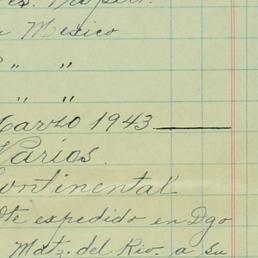 Mexico
" "
" "
Marzo 1943
Varios.
Continental
expedido en Dgo
Matz. del Rio. a su